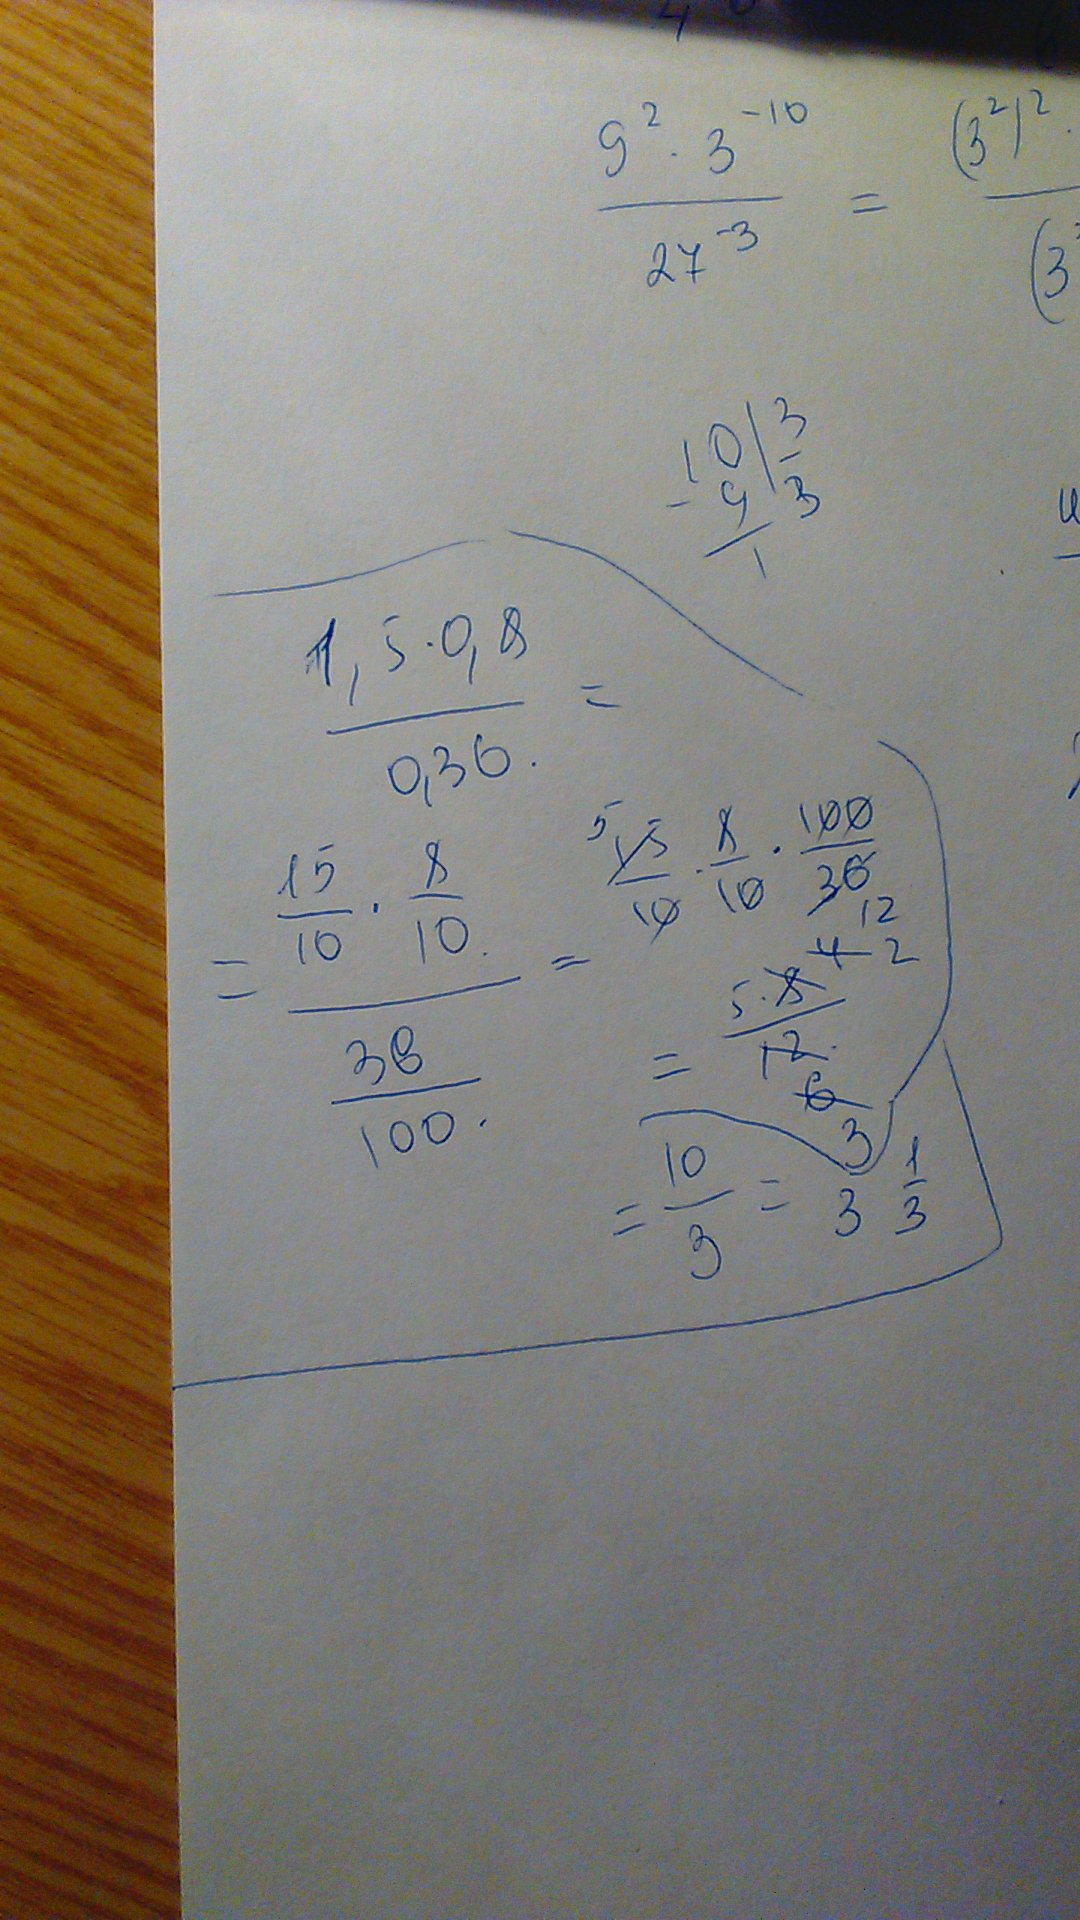 9² · 3⁻¹⁰ / 27⁻³ = (3²)² · / (3
10 | 3
- 9 3
1
1,5 · 0,8 / 0,36 =
= 15/10 · 8/10 / 36/100 = 5 15/10 · 8/10 · 100/36
12
= 5 · 8 / 12 4 2
6
3
= 10/3 = 3 1/3